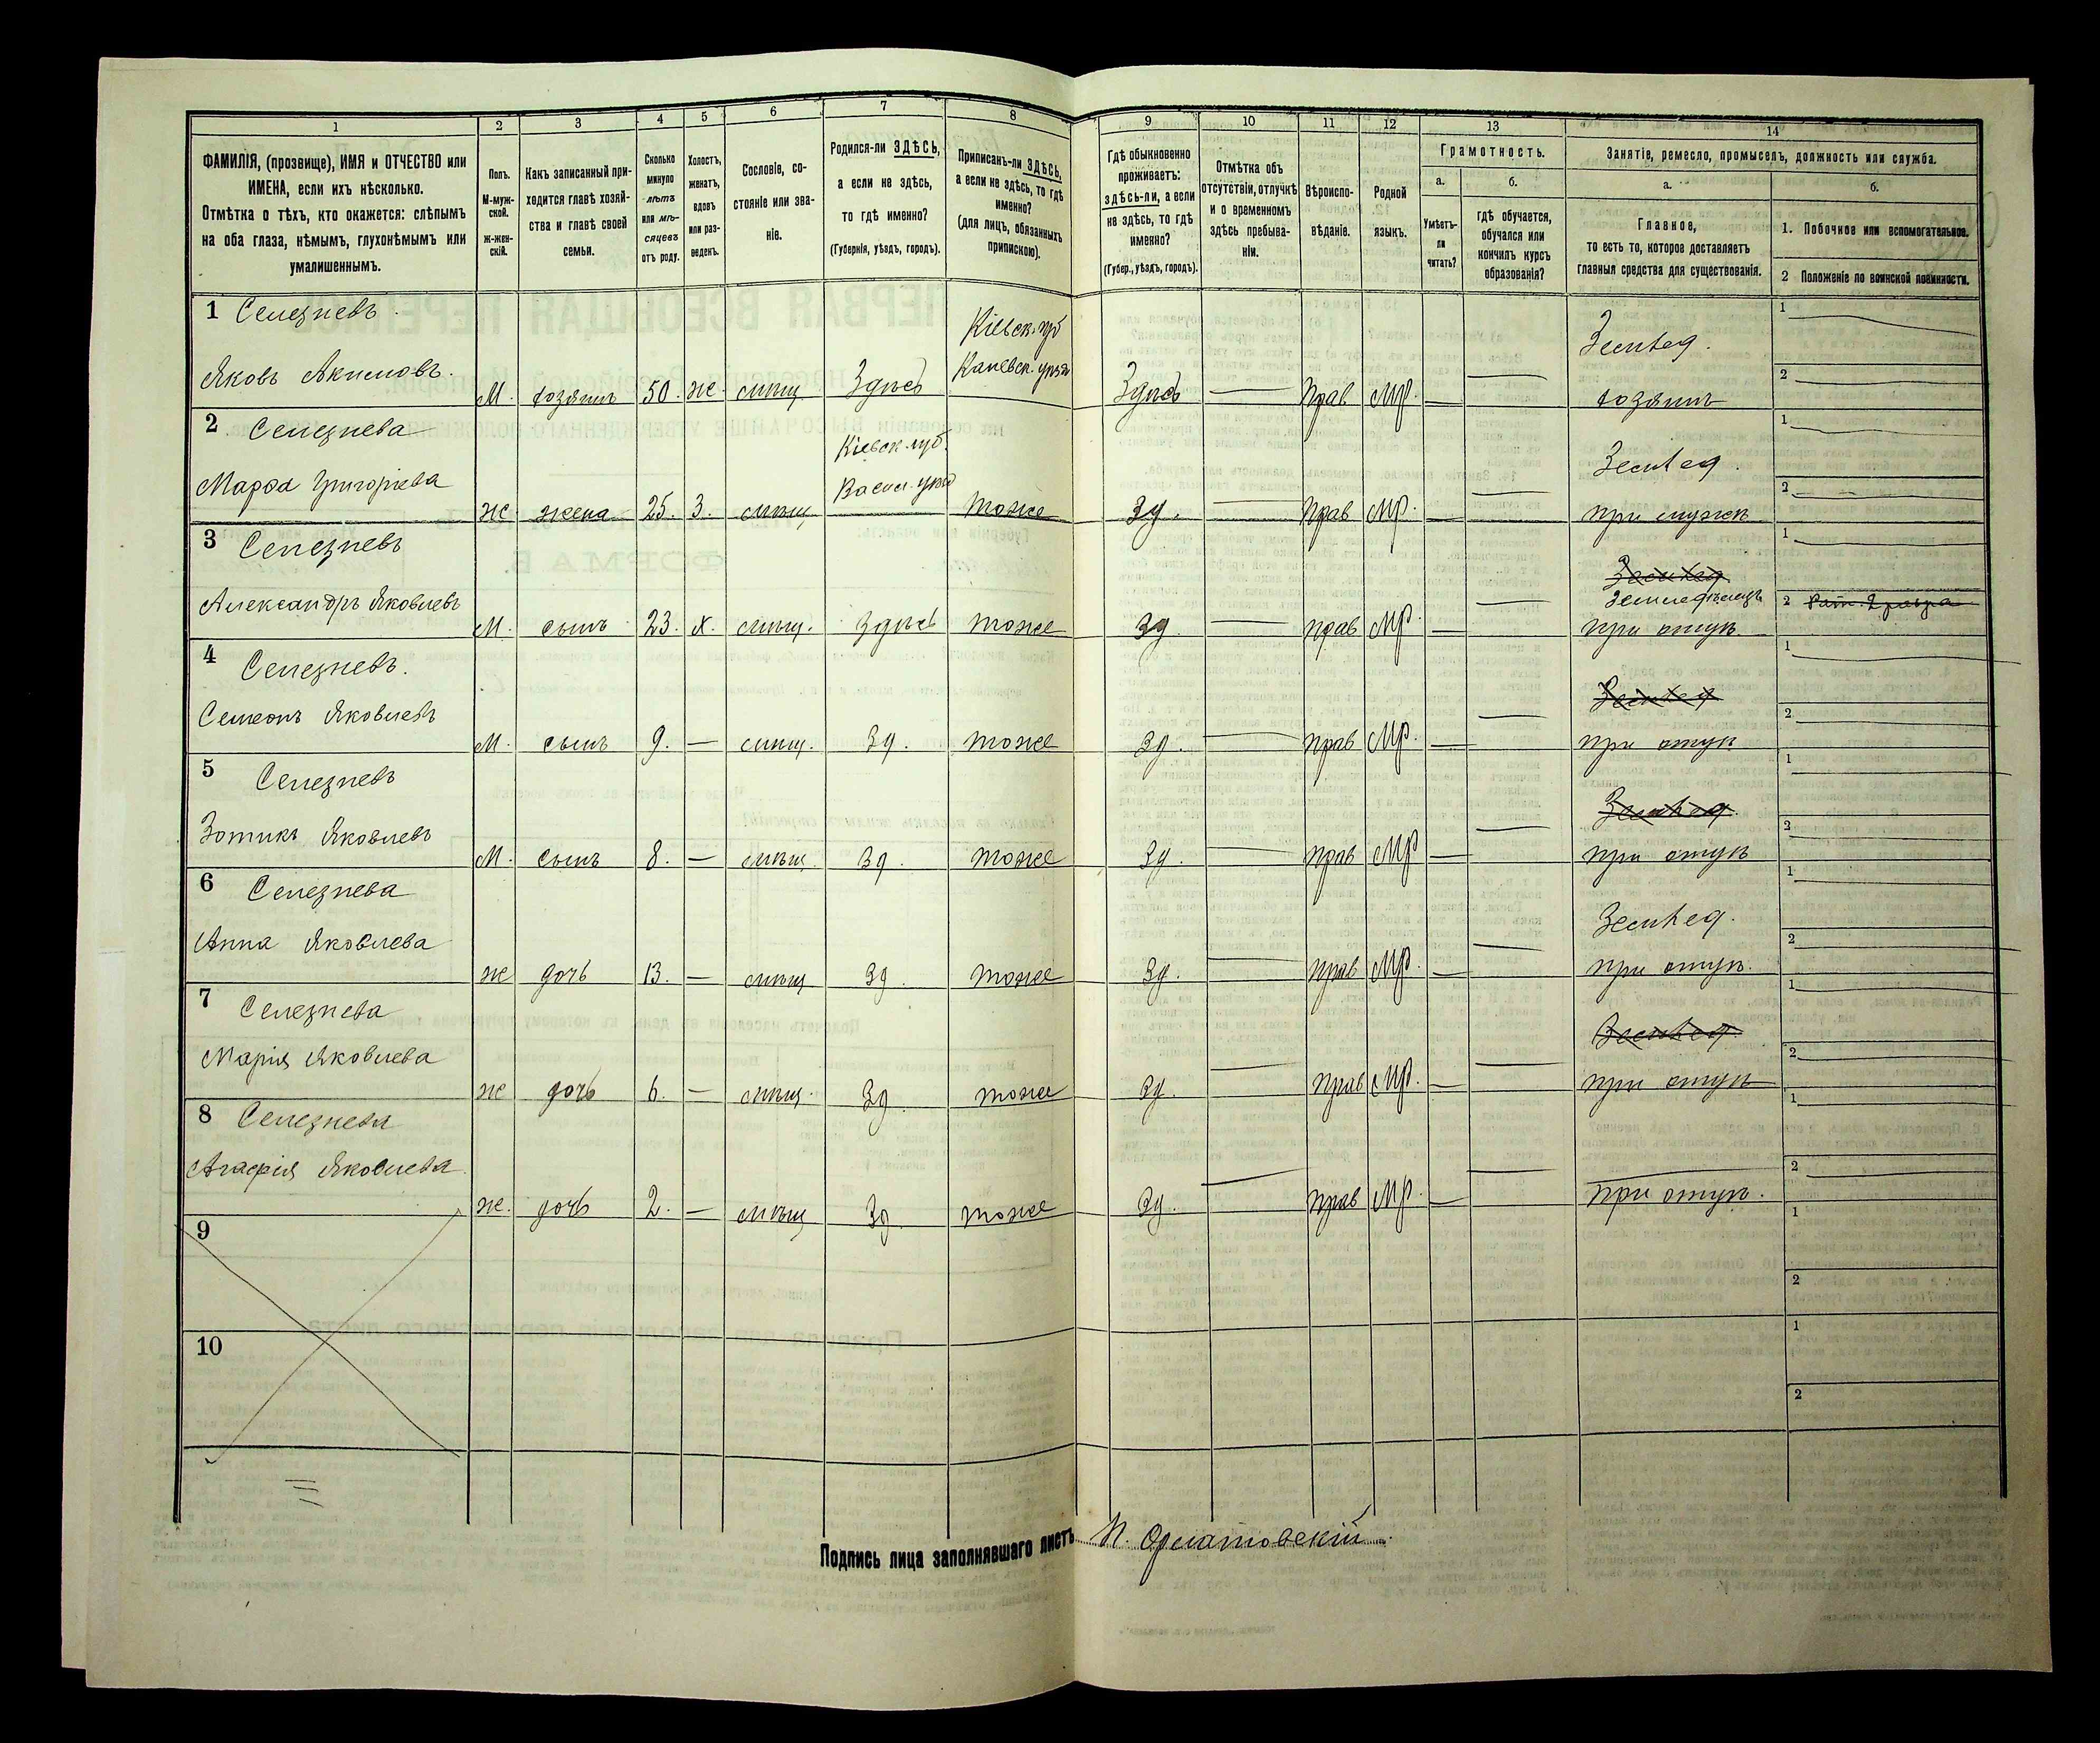 1 2 3 4 5 6 7 8
ФАМИЛІЯ, (прозвище), ИМЯ и ОТЧЕСТВО или
ИМЕНА, если ихъ нѣсколько.
Отмѣтка о тѣхъ, кто окажется: слѣпымъ
на оба глаза, нѣмымъ, глухонѣмымъ или
умалишеннымъ.
Полъ.
М-муж-
ской.
Ж-жен-
скій.
Какъ записанный при-
ходится главѣ хозяй-
ства и главѣ своей
семьи.
Сколько
минуло
лѣтъ
или мѣ-
сяцевъ
отъ роду.
Холостъ,
женатъ,
вдовъ
или раз-
веденъ.
Сословіе, со-
стояніе или зва-
ніе.
Родился-ли ЗДѢСЬ,
а если не здѣсь,
то гдѣ именно?
(Губернія, уѣздъ, городъ).
Приписанъ-ли ЗДѢСЬ,
а если не здѣсь, то гдѣ
именно?
(для лицъ, обязанныхъ
припискою).
9 10 11 12 13 14
Гдѣ обыкновенно
проживаетъ:
здѣсь-ли, а если
не здѣсь, то гдѣ
именно?
(Губер., уѣздъ, городъ).
Отмѣтка объ
отсутствіи, отлучкѣ
и о временномъ
здѣсь пребыва-
ніи.
Вѣроиспо-
вѣданіе.
Родной
языкъ.
Грамотность.
а.
Умѣетъ-
ли
читать?
б.
гдѣ обучается,
обучался или
кончилъ курсъ
образованія?
Занятіе, ремесло, промыселъ, должность или служба.
а.
Главное,
то есть то, которое доставляетъ
главныя средства для существованія.
б.
1. Побочное или вспомогательное.
2 Положеніе по воинской повинности.
1 Селезневъ
Яковъ Акимовъ. М. хозяинъ 50. ж. мѣщ. Здѣсь
Кіевск. губ
Каневск. уѣзд
Здѣсь — Прав Мр. — —
Землед.
хозяинъ
1
2
2 Селезнева
Марфа Григорьева ж жена 25. З. мѣщ
Кіевск. губ.
Васил. уѣзд
тоже Зд. — Прав Мр. — —
Землед.
при мужѣ
1
2
3 Селезневъ
Александръ Яковлевъ М. сынъ 23. х. мѣщ. Здѣсь тоже Зд — прав Мр. — —
Землед
Земледѣлецъ
при отцѣ
1
2
4 Селезневъ.
Семенъ Яковлевъ М. сынъ 9. — мѣщ. Зд. тоже Зд. — прав Мр. — —
Землед
при отцѣ
1
2
5 Селезневъ
Зотикъ Яковлевъ М. сынъ 8. — мѣщ. Зд. тоже Зд. — прав Мр — —
Землед.
при отцѣ
1
2
6 Селезнева
Анна Яковлева ж дочь 13. — мѣщ Зд. тоже Зд. — прав Мр. — —
Землед.
при отцѣ.
1
2
7 Селезнева
Марія Яковлева ж дочь 6. — мѣщ. Зд. тоже Зд. — прав Мр. — —
Землед
при отцѣ
1
2
8 Селезнева
Агафія Яковлева ж. дочь 2. — мѣщ Зд. тоже Зд. — прав Мр. — —
при отцѣ.
1
2
9
1
2
10
1
2
Подпись лица заполнявшаго листъ